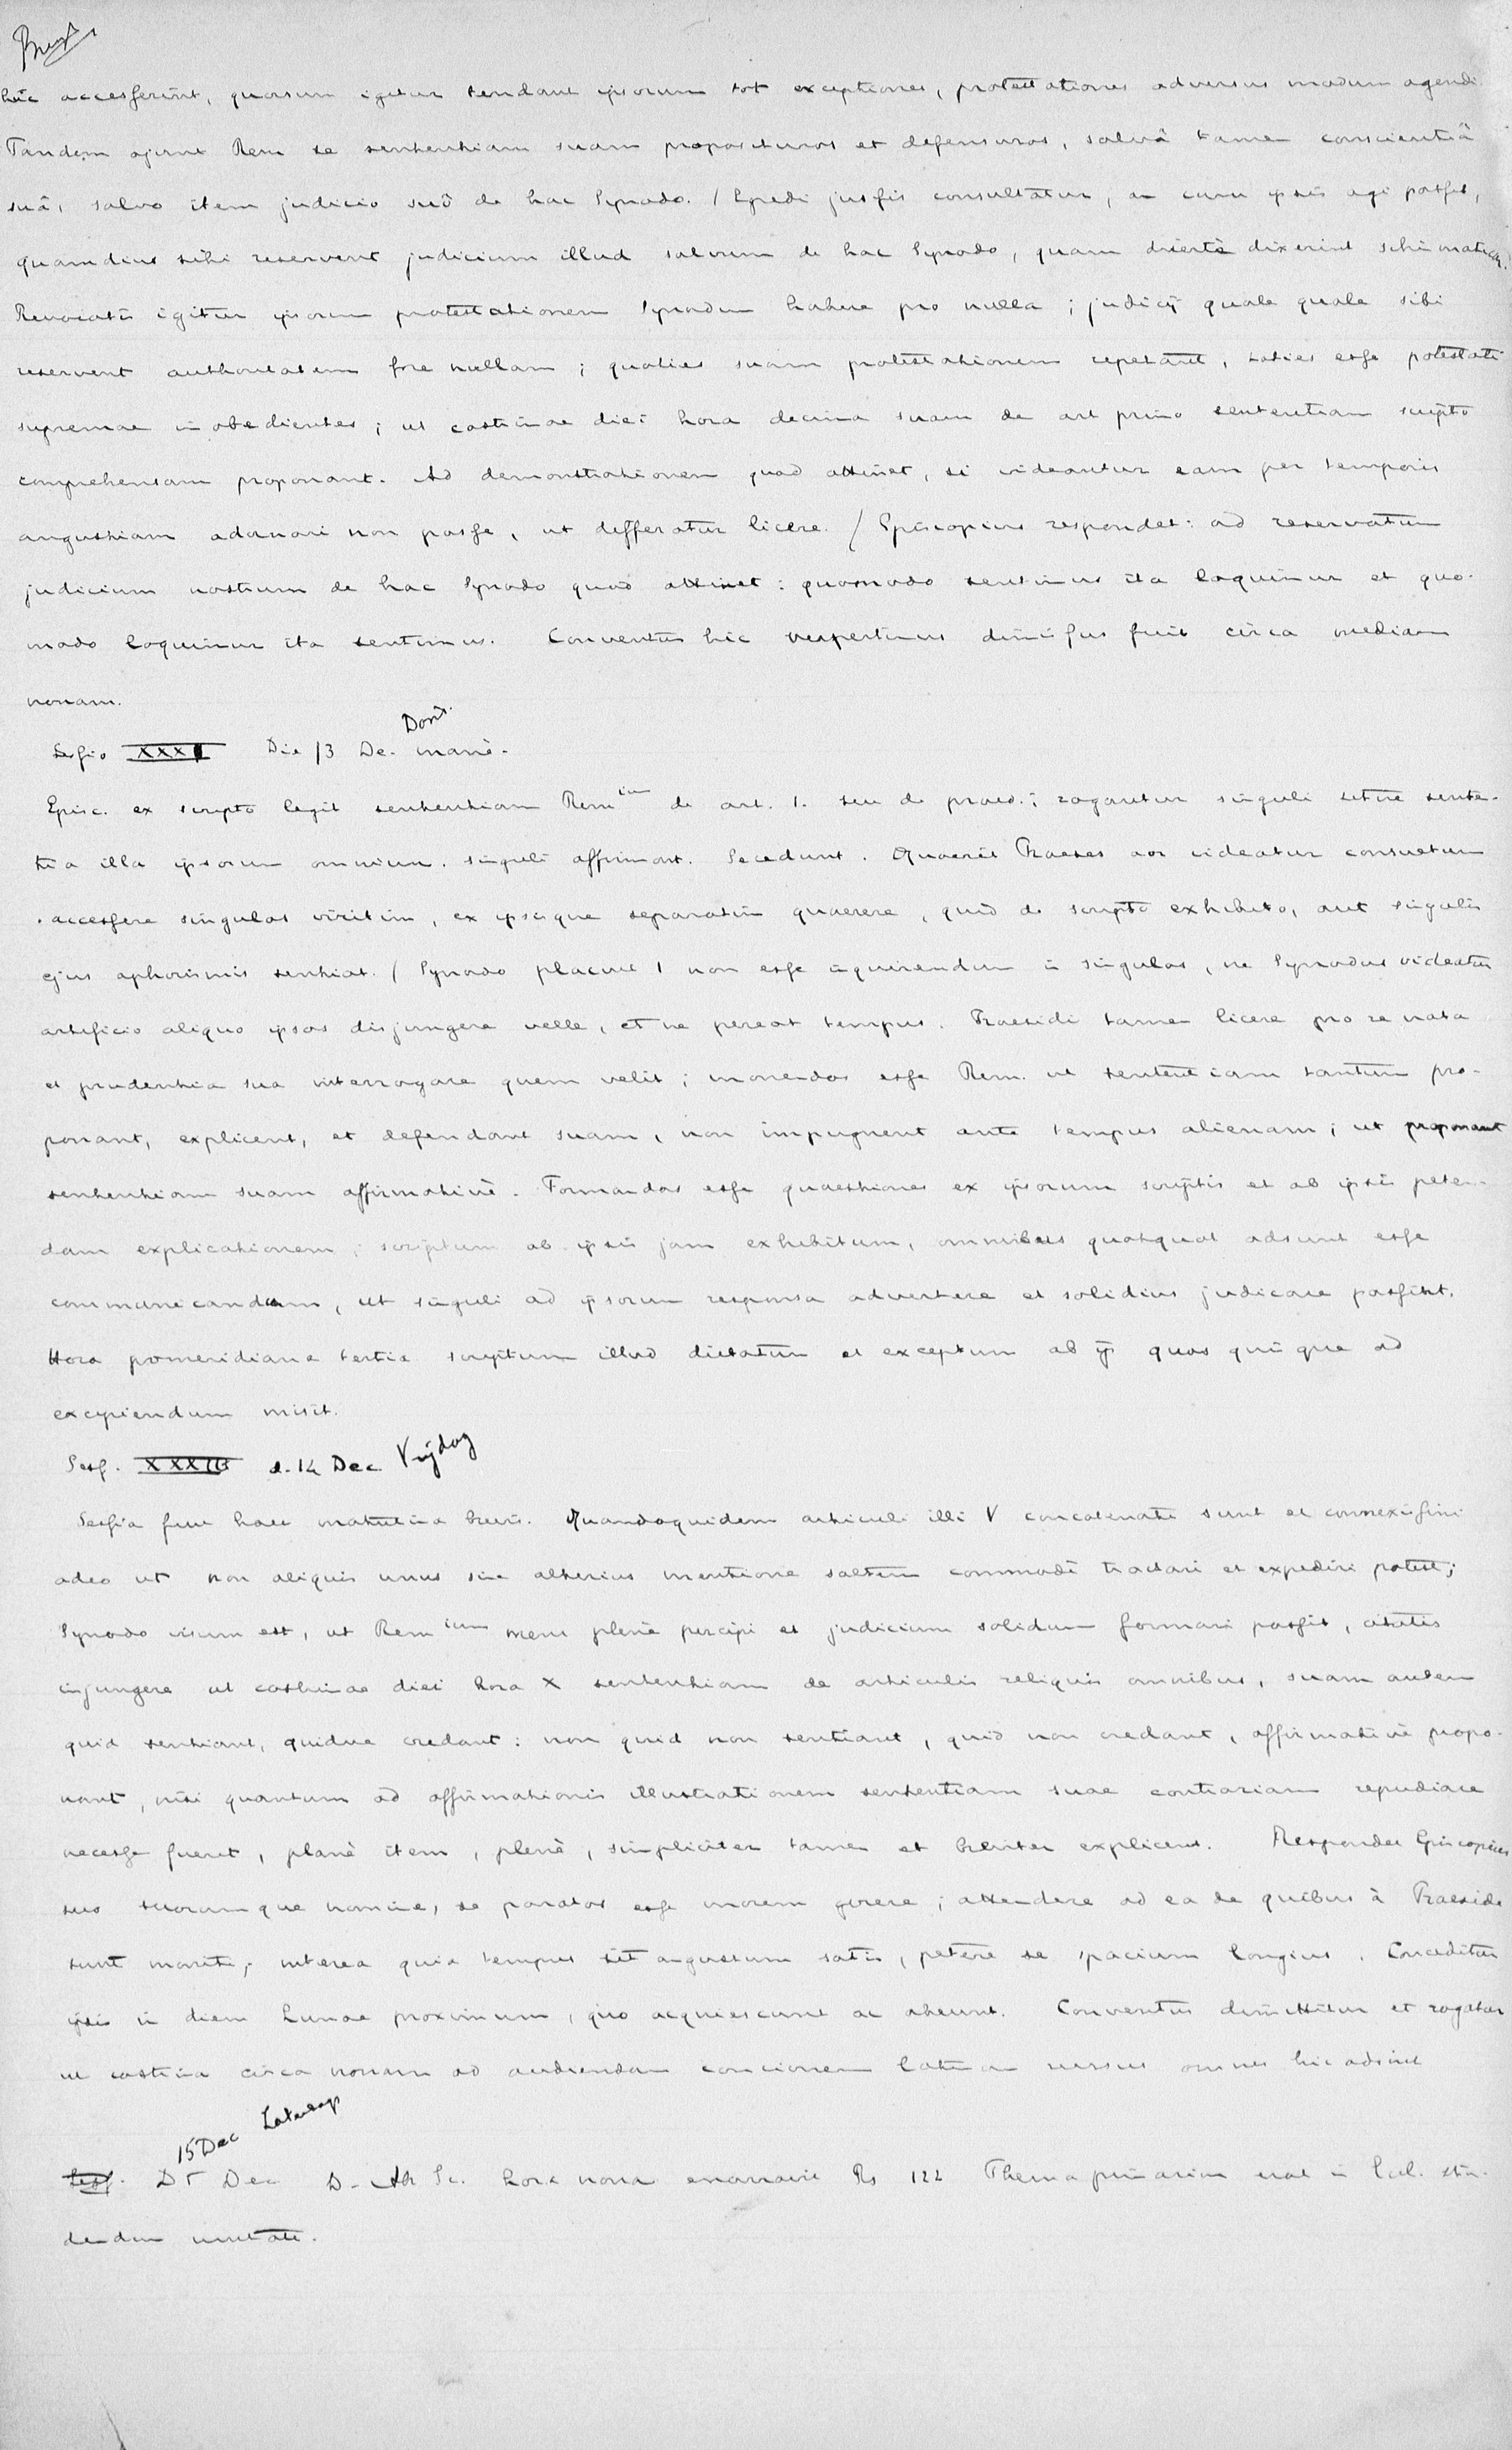 huc accesserint, quorsum igitur tendant ipsorum tot exceptiones, protestationes adversus modum agendi.
Tandem ajunt Rem se sententiam suam proposituros et defensuros, salvâ tamen conscientiâ
suâ, salvo item judicio suô de hac Synodo. / Egredi jussis consultatur, an cum ipsis agi possit,
quamdiu sibi reservent judicium illud salvum de hac Synodo, quam disertè dixerint schismaticam.
Revocatis igitur ipsorum protestationem Synodum habere pro nulla; judicij quale quale sibi
reservent authoritatem fore nullam; quoties suam protestationem repetant, toties esse potestati
supremae inobedientes; ut crastinae diei hora decima suam de art primo sententiam scripto
comprehensam proponant. Ad demonstrationem quod attinet, si videantur eam per temporis
angustiam adornari non posse, ut differatur licere. / Episcopius respondet: ad reservatum
judicium nostrum de hac Synodo quod attinet: quomodo sentimus ita loquimur et quo-
modo loquimur ita sentimus. Conventus hic vespertinus dimissus fuit circa mediam
nonam.
Dond.
Sessio XXXII Die 13 De. manè.
Episc. ex scripto legit sententiam Rem ium de art. 1. seu de praed.; rogantur singuli sitne senten-
tia illa ipsorum omnium. singuli affirmant. Secedunt. Quaerit Praeses an videatur consultum
accessere singulos viritim, ex ipsisque separatim quaerere, quid de scripto exhibito, aut singulis
ejus aphorismis sentiat. / Synodo placuit 1 non esse inquirendum in singulos, ne Synodus videatur
artificio aliquo ipsos disjungere velle, et ne pereat tempus. Praesidi tamen licere pro re nata
et prudentia sua interrogare quem velit; monendos esse Rem. ut sententiam tantum pro-
ponant, explicent, et defendant suam, non impugnent ante tempus alienam; ut proponant
sententiam suam affirmativè. Formandas esse quaestiones ex ipsorum scriptis et ab ipsis peten-
dam explicationem; scriptum ab ipsis jam exhibitum, omnibus quotquot adsunt esse
communicandum, ut singuli ad ipsorum responsa advertere et solidius judicare possint.
Hora pomeridiana tertia scriptum illud dictatum et exceptum ab ijs quos quique ad
excipiendum misit.
Sess. XXXIII d. 14 Dec Vrijdag
Sessio fuit haec matutina brevis. Quandoquidem articuli illi V concatenati sunt et connexissimi
adeo ut non aliquis unus sine alterius mentione saltem commodè tractari et expediri potest;
Synodo visum est, ut Rem ium mens plenè percipi et judicium solidum formari possit, citatis
injungere ut crastinae diei hora X sententiam de articulis reliquis omnibus, suam autem
quid sentiant, quidve credant: non quid non sentiant, quid non credant, affirmativè propo-
nant, nisi quantum ad affirmationis illustrationem sententiam suae contrariam repudiare
necesse fuerit, planè item, plenè, simpliciter tamen et breviter explicent. Respondet Episcopius
suo suorumque nomine, se paratos esse morem gerere; attendere ad ea de quibus à Praeside
sunt moniti; interea quia tempus sit angustum satis, petere se spacium longius. Conceditur
ipsis in diem Lunae proximum, quo acquiescunt ac abeunt. Conventus dimittitur et rogatur
ut crastina circa nonam ad audiendam concionem latinam rursus omnes hic adsint
15 Dec Zaterdag
Sess. D Dec D. hora nona enarravit Ps 122 Thema primarium erat in Eccl. stu-
dendum unitati.